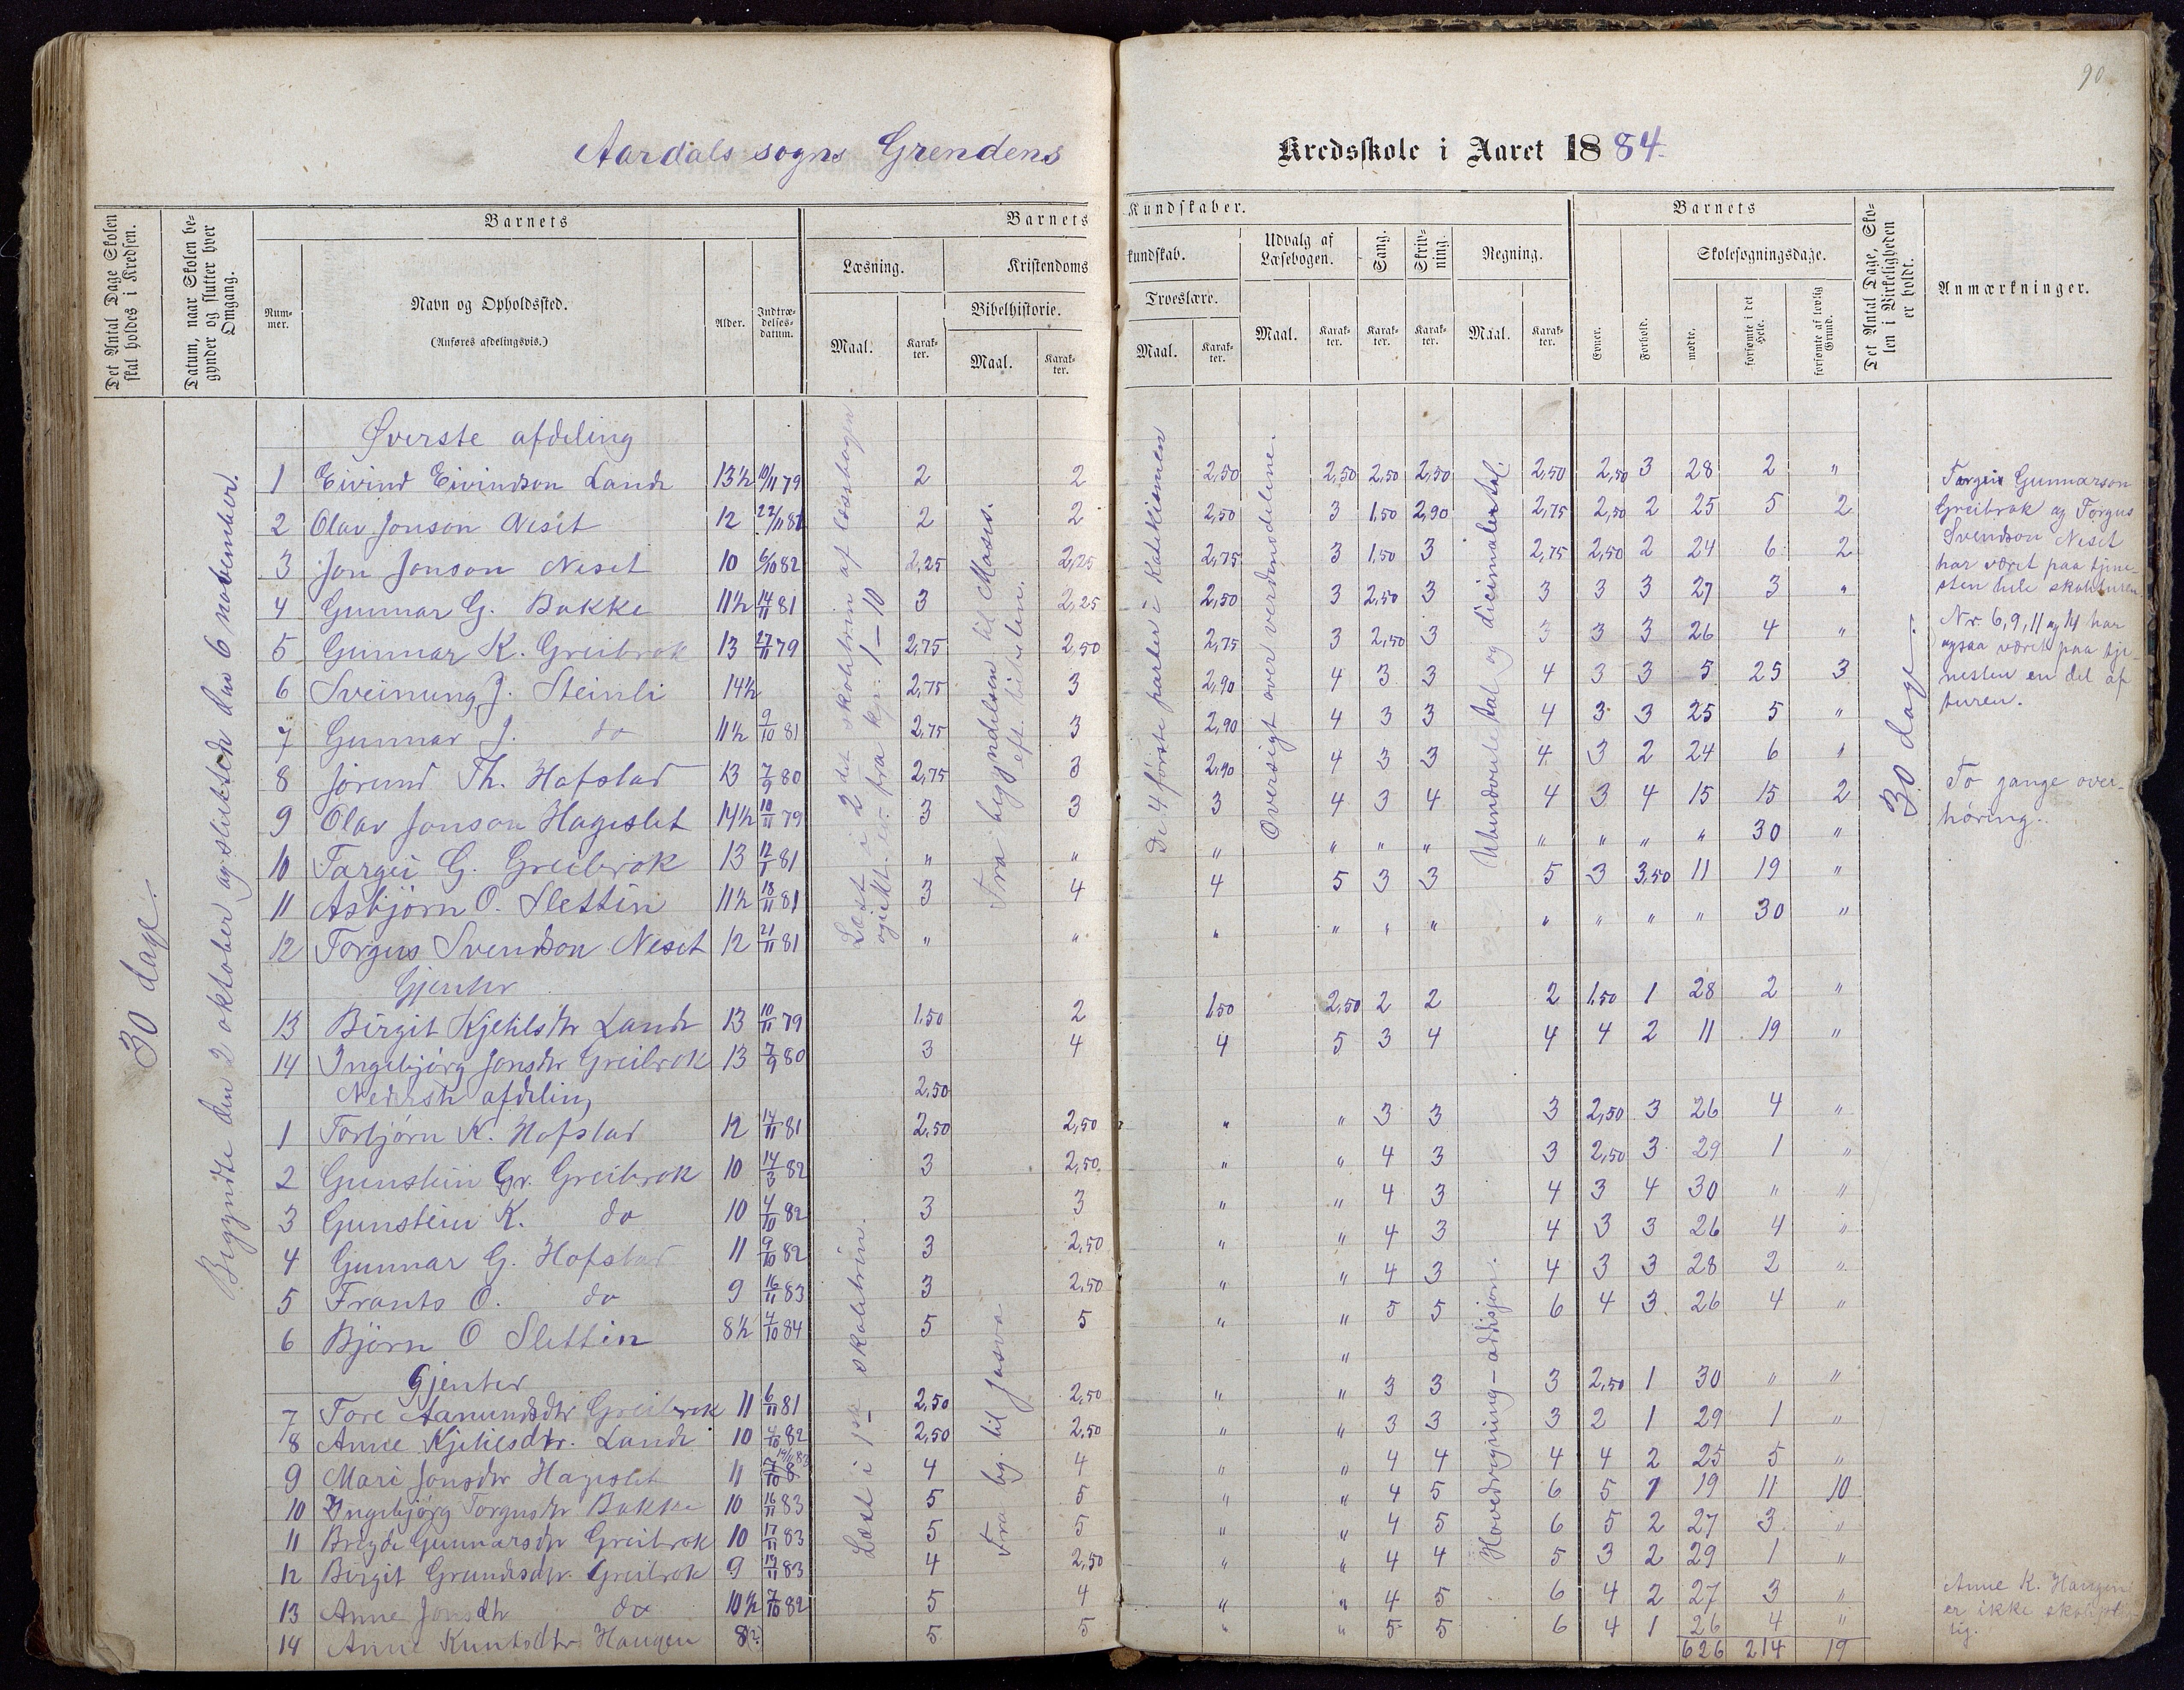 90
Aardals sogns Grendens Kredsskole i Aaret 1884.
Det Antal Dage Skolen skal holdes i Kredsen.
Datum, naar Skolen begynder og slutter hver Omgang.
Barnets
Nummer.
Navn og Opholdssted.
(Anføres afdelingsvis.)
Alder.
Indtrædelsesdatum.
Barnets Kundskaber.
Læsning.
Maal. Karakter.
Kristendomskundskab.
Bibelhistorie.
Maal. Karakter.
Troeslære.
Maal. Karakter.
Udvalg af Læsebogen.
Maal. Karakter.
Sang.
Karakter.
Skrivning.
Karakter.
Regning.
Maal. Karakter.
Barnets
Evner.
Forhold.
Skolesøgningsdage.
mødte.
forsømte i det Hele.
forsømte af lovlig Grund.
Det Antal Dage, Skolen i Virkeligheden er holdt.
Anmærkninger.
30 dage.
Begyndte den 2 oktober og sluttede den 6 november.
Læst i 2det skoletrin af læsebogen
fra 1–10
Fra begyndelsen til Moses.
eft. bibelen.
De 4 første parter i Katekismen
Oversigt over verdensdelene.
Ubenævnte tal og decimaler
30 dage
Øverste afdeling
1 Eivind Eivindson Lande 13½ 10/11 79 2 2 2,50 2,50 2,50 2,50 2,50 2,50 3 28 2 "
2 Olav Jonson Neset 12 22/11 81 2 2 2,50 3 1,50 2,90 2,75 2,50 2 25 5 2
3 Jon Jonson Neset 10 6/10 82 2,25 2,25 2,75 3 1,50 3 2,75 2,50 2 24 6 2
4 Gunnar G. Bakke 11½ 14/11 81 3 2,25 2,50 3 2,50 3 3 3 3 27 3 "
5 Gunnar K. Greibrok 13 27/11 79 2,75 2,50 2,75 3 2,50 3 3 3 3 26 4 "
6 Sveinung J. Steinli 14½ 2,75 3 2,90 4 3 3 4 3 3 5 25 3
7 Gunnar J. do 11½ 9/10 81 2,75 3 2,90 4 3 3 4 3 3 25 5 "
8 Jørund Th. Hofstad 13 7/9 80 2,75 3 2,90 4 3 3 4 3 2 24 6 "
9 Olav Jonson Hageslet 14½ 10/11 79 3 3 3 4 3 4 4 3 4 15 15 2
10 Targei G. Greibrok 13 12/1 81 " " " " " " " " " " 30 "
11 Asbjørn O. Slettin 11½ 18/11 81 3 4 4 5 3 3 5 3 3,50 11 19 "
12 Torgus Svendson Neset 12 21/11 81 " " " " " " " " " " 30 "
Gjenter
13 Birgit Kjetilsdtr Lande 13 10/11 79 1,50 2 1,50 2,50 2 2 2 1,50 1 28 2 "
14 Ingebjørg Jonsdtr Greibrok 13 7/9 80 3 4 4 5 3 4 4 4 2 11 19 "
Nederste afdeling 2,50
1 Torbjørn K. Hofstad 12 14/11 81 2,50 2,50 " " 3 3 3 2,50 3 26 4 "
2 Gunstein Gr. Greibrok 10 14/3 82 3 2,50 " " 4 3 3 2,50 3 29 1 "
3 Gunstein K. do 10 4/10 82 3 3 " " 4 3 4 3 4 30 " "
4 Gunnar G. Hofstad 11 9/10 82 3 2,50 " " 4 3 4 3 3 26 4 "
5 Frants O. do 9 16/11 83 3 2,50 " " 4 3 4 3 3 28 2 "
6 Bjørn O Slettin 8½ 4/10 84 5 5 " " 5 5 6 4 3 26 4 "
Gjenter "
7 Tore Aanundsdtr Greibrok 11 6/11 81 2,50 2,50 " " 3 3 3 2,50 1 30 " "
8 Anne Kjetilsdtr. Lande 10 4/10 82 2,50 2,50 " " 3 3 3 2 1 29 1 "
9 Mari Jonsdtr Hageslet 11 4 4 " " 4 4 4 4 2 25 5 "
10 Ingebjørg Torgusdtr Bakke 10 16/11 83 5 5 " " 4 5 6 5 1 19 11 10
11 Gunnarsdtr Greibrok 10 17/11 83 5 5 " " 4 5 6 5 2 27 3 "
12 Birgit Greibrok 9 19/11 83 4 2,50 " " 4 4 5 3 2 29 1 "
13 Anne Jonsdtr do 10½ 7/10 82 5 4 " " 4 5 6 4 2 27 3 "
14 Anne Knutsdtr Haugen 8(?) 5 5 " " 5 5 6 4 1 26 4 "
626 214 19
Læst i 1ste skoletrin.
Fra beg. til Josva
Hovedregning – addisjon.
Targei Gunnarson
Greibrok og Torgus
Svendson Neset
har været paa tjene-
sten hele skoleturen.
Nr 6, 9, 11 og 14 har
ogsaa været paa tje-
nesten en del af
turen.
To gange over-
høring.
Anne K. Haugen
er ikke skoleplig-
tig.